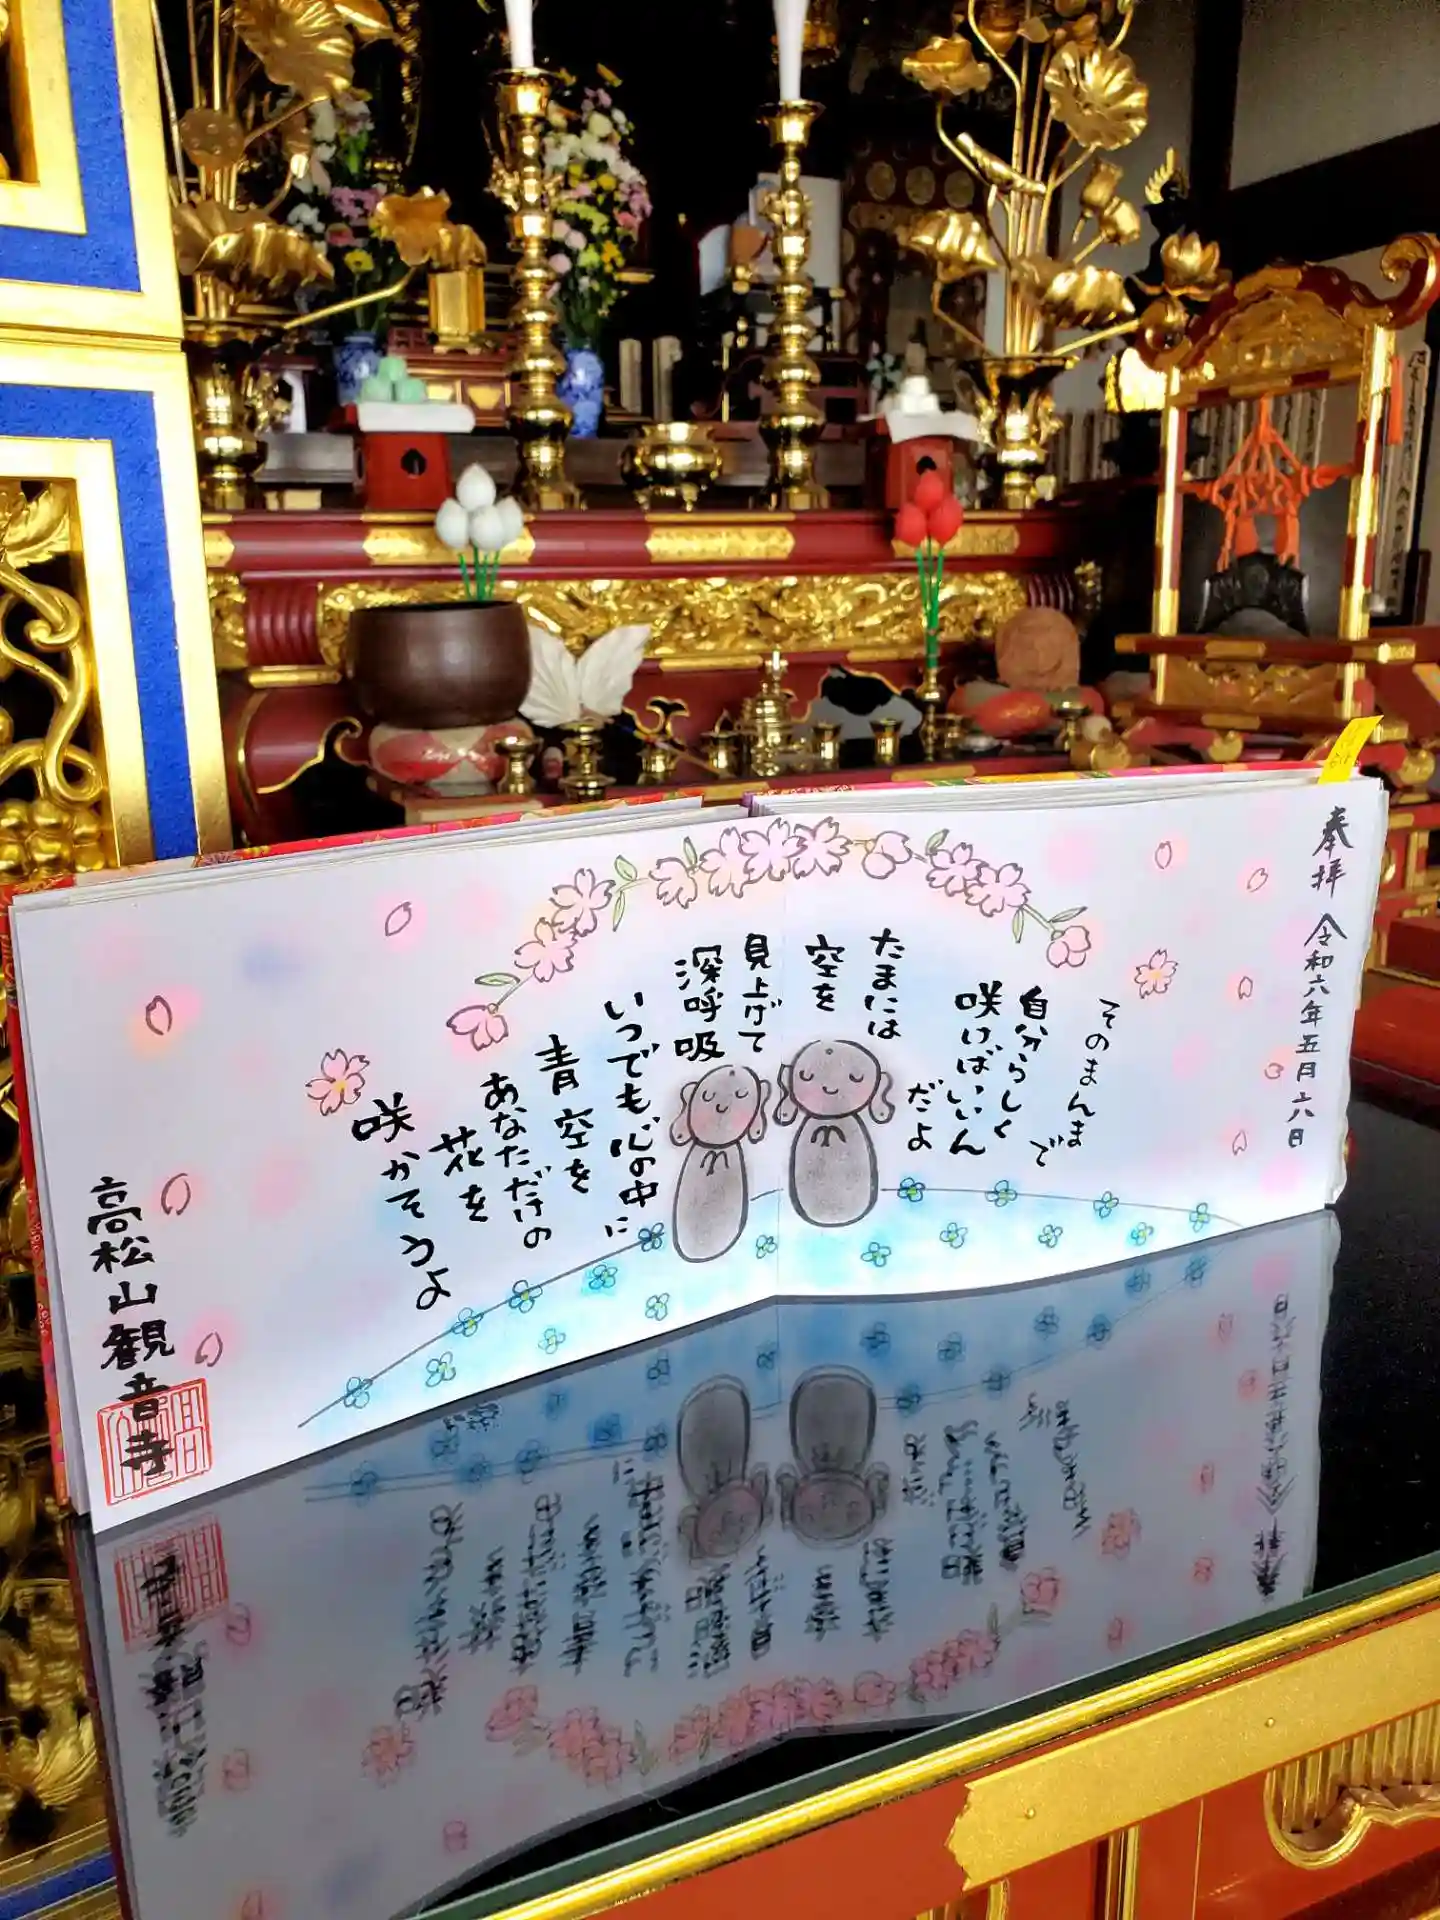 奉拝
令和六年五月六日
そのまんまで
自分らしく
咲けばいいん
だよ
たまには
空を
見上げて
深呼吸
いつでも心の中に
青空を
あなただけの
花を
咲かそうよ
高松山観音寺